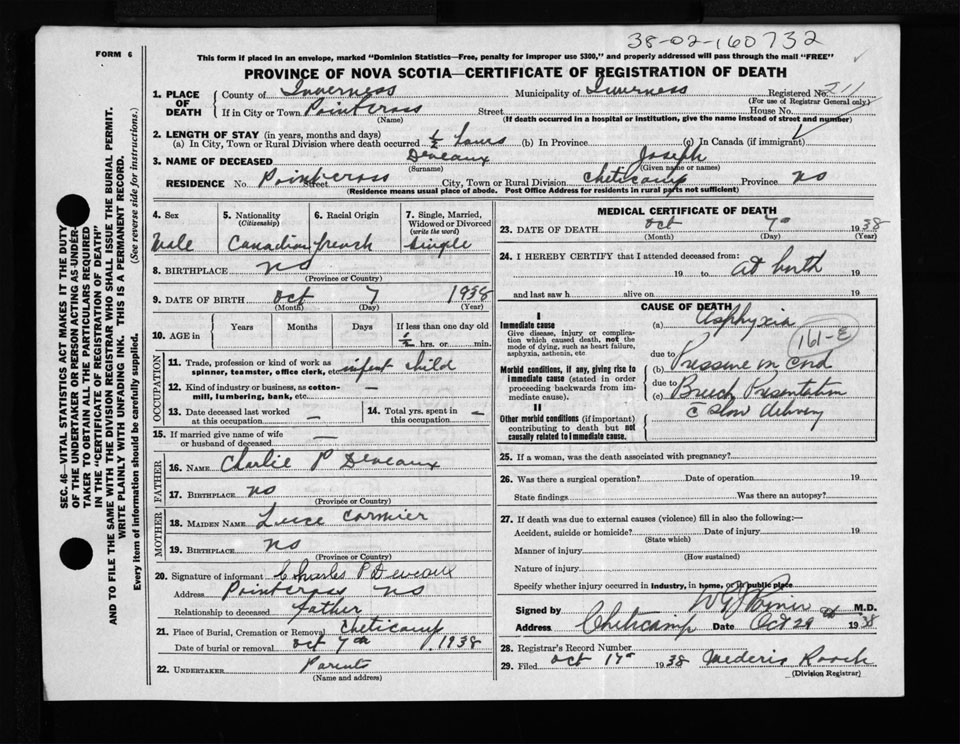 38-02-160732
FORM 6
This form if placed in an envelope, marked "Dominion Statistics—Free, penalty for improper use $300," and properly addressed will pass through the mail "FREE"
PROVINCE OF NOVA SCOTIA—CERTIFICATE OF REGISTRATION OF DEATH
1. PLACE OF DEATH County of Inverness Municipality of Inverness Registered No. 211
(For use of Registrar General only.)
If in City or Town Pointcross Street House No.
(Name) (If death occurred in a hospital or institution, give the name instead of street and number)
2. LENGTH OF STAY (in years, months and days)
(a) In City, Town or Rural Division where death occurred ½ hours (b) In Province (c) In Canada (if immigrant)
3. NAME OF DECEASED Deveaux Joseph
(Surname) (Given name or names)
RESIDENCE No. Pointcross Street City, Town or Rural Division Cheticamp Province NS
(Residence means usual place of abode. Post Office Address for residents in rural parts not sufficient)
4. Sex 5. Nationality (Citizenship) 6. Racial Origin 7. Single, Married, Widowed or Divorced (write the word)
Male Canadian french single
8. BIRTHPLACE NS
(Province or Country)
9. DATE OF BIRTH Oct 7 1938
(Month) (Day) (Year)
10. AGE in Years Months Days If less than one day old
½ hrs. or min.
OCCUPATION
11. Trade, profession or kind of work as spinner, teamster, office clerk, etc. infent child
12. Kind of industry or business, as cotton-mill, lumbering, bank, etc. —
13. Date deceased last worked at this occupation — 14. Total yrs. spent in this occupation —
15. If married give name of wife or husband of deceased —
FATHER
16. NAME Charlie P Deveaux
17. BIRTHPLACE NS
(Province or Country)
MOTHER
18. MAIDEN NAME Luce Cormier
19. BIRTHPLACE NS
(Province or Country)
20. Signature of informant Charles P Deveaux
Address Pointcross NS
Relationship to deceased father
21. Place of Burial, Cremation or Removal Cheticamp
Date of burial or removal Oct 7th 1938
22. UNDERTAKER Parents
(Name and address)
MEDICAL CERTIFICATE OF DEATH
23. DATE OF DEATH Oct 7th 1938
(Month) (Day) (Year)
24. I HEREBY CERTIFY that I attended deceased from:
19 to at birth 19
and last saw h alive on 19
CAUSE OF DEATH
I
Immediate cause
Give disease, injury or complication which caused death, not the mode of dying, such as heart failure, asphyxia, asthenia, etc
(a) Asphyxia
161-E
due to
Morbid conditions, if any, giving rise to immediate cause (stated in order proceeding backwards from immediate cause).
(b) Pressure on Cord
due to
(c) Breech Presentation
c slow delivery
II
Other morbid conditions (if important) contributing to death but not causally related to immediate cause.
25. If a woman, was the death associated with pregnancy?
26. Was there a surgical operation? Date of operation 19
State findings Was there an autopsy?
27. If death was due to external causes (violence) fill in also the following:—
Accident, suicide or homicide? Date of injury 19
(State which)
Manner of injury
(How sustained)
Nature of injury
Specify whether injury occurred in industry, in home, or in public place
Signed by M.D.
Address Cheticamp Date Oct 29 1938
28. Registrar's Record Number
29. Filed Oct 17th 1938 Mederic Roach
(Division Registrar)
SEC. 46—VITAL STATISTICS ACT MAKES IT THE DUTY
OF THE UNDERTAKER OR PERSON ACTING AS UNDER-
TAKER TO OBTAIN ALL THE PARTICULARS REQUIRED
IN THE "CERTIFICATE OF REGISTRATION OF DEATH"
AND TO FILE THE SAME WITH THE DIVISION REGISTRAR WHO SHALL ISSUE THE BURIAL PERMIT.
WRITE PLAINLY WITH UNFADING INK. THIS IS A PERMANENT RECORD.
Every item of information should be carefully supplied. (See reverse side for instructions.)